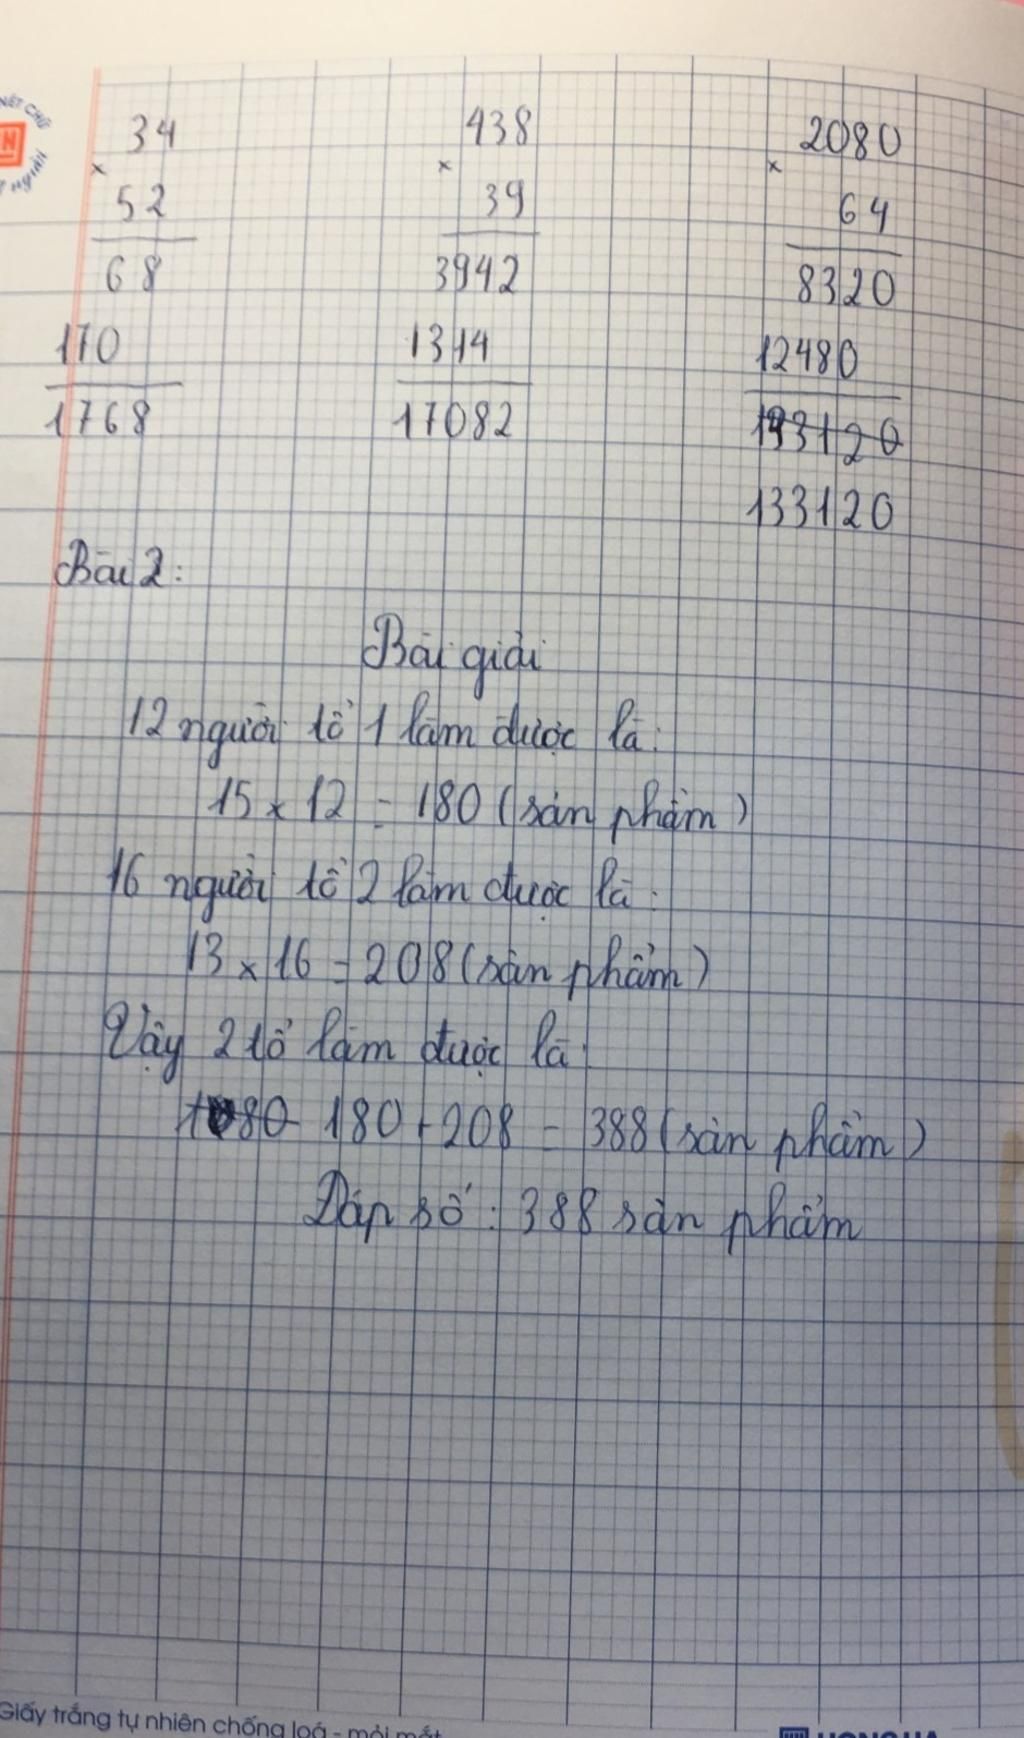 NÉT CHỮ
34
×
52
68
170
1768
438
×
39
3942
1314
17082
2080
×
64
8320
12480
193120
133120
Bài 2:
Bài giải
12 người tổ 1 làm được là:
15 × 12 = 180 (sản phẩm)
16 người tổ 2 làm được là:
13 × 16 = 208 (sản phẩm)
Vậy 2 tổ làm được là:
180 + 208 = 388 (sản phẩm)
Đáp số: 388 sản phẩm
Giấy trắng tự nhiên chống loá - mỏi mắt
HONG HA